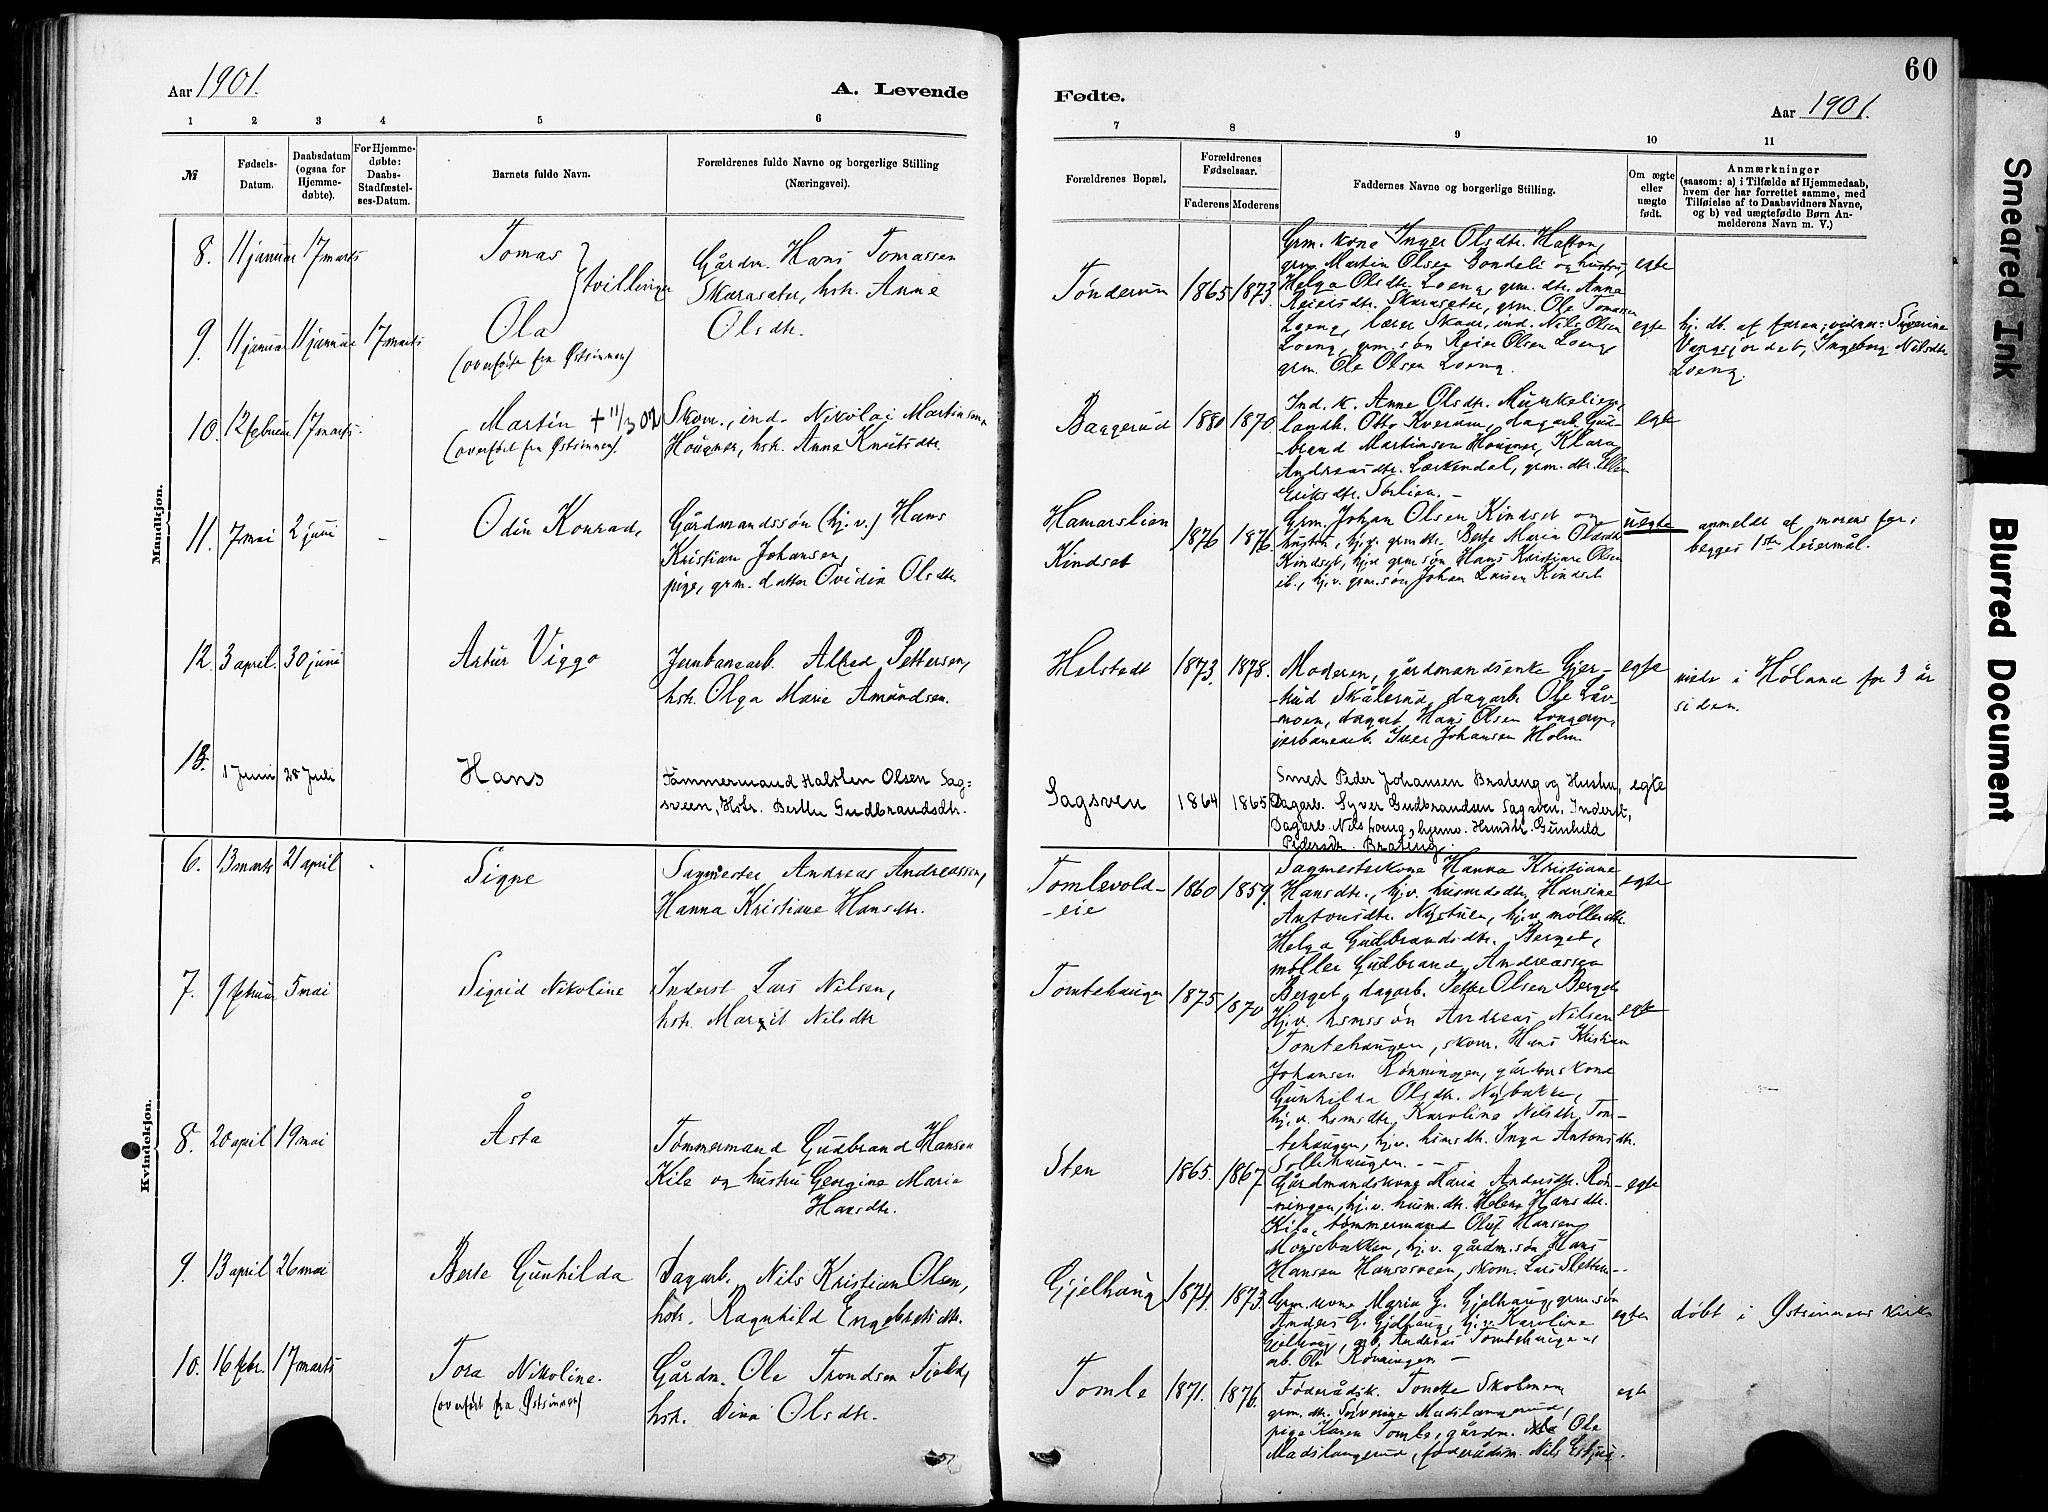 60
Aar 1901.
A. Levende
Fødte.
Aar 1901.
1 2 3 4 5 6
7 8 9 10 11
№
Fødsels-
Datum.
Daabsdatum
(ogsaa for
Hjemme-
døbte).
For Hjemme-
døbte:
Daabs-
Stadfæstel-
ses-Datum.
Barnets fulde Navn.
Forældrenes fulde Navne og borgerlige Stilling
(Næringsvei).
Forældrenes Bopæl,
Forældrenes
Fødselsaar.
Faderens Moderens
Faddernes Navne og borgerlige Stilling.
Om ægte
eller
uægte
født.
Anmærkninger
(saasom: a) i Tilfælde af Hjemmedaab,
hvem der har forrettet samme, med
Tilføielse af to Daabsvidners Navne,
og b) ved uægtefødte Børn An-
melderens Navn m. V.)
Mandkjøn.
8. 11 januar 17 marts
Tomas
tvillinger
Gårdm. Hans Tomassen
Skaraseter, hstr. Anne
Olsdtr.
Tönderun 1865 1873
Grm. kone Inger Olsdtr.
grm. Martin Olsen Bondeli og hustru
Helga Olsdtr. Loeng, grm. dtr. Anna
Reiersdtr. Skaraseter, grm. Ole Tomassen
Loeng, lærer Skaar, ind. Nils Olsen
Loeng, grm. søn Reier Olsen Loeng,
grm. Ole Olsen Loeng.
egte
9. 11 januar 11 januar 17 marts
Ola
(overført fra Østsinnen)
egte
hj. db. af faren; vidner: Syverine
Vangsjordet, Ingeborg Nilsdtr.
Loeng.
10. 12 februar 17 marts.
Martin + 11/3 02
(overført fra Østsinnen).
Skom., ind. Nikolai Martinsen
Hougner, hstr. Anne Knutsdtr.
Baggerud 1880 1870
Ind. k. Anne Olsdtr. Munkelien,
landh. Otto Kverum, dagarb. Gud-
brand Martinsen Hougner, Klara
Andreasdtr. Lærkendal, grm. dtr. Ellen
Eriksdtr. Sørlien. -
egte
11. 7 mai 2 juni -
Odin Konrad,
Gårdmandssön (hj. v.) Hans
Kristian Johansen,
pige, grm. datter Ovidia Olsdtr.
Hamarslien
Kindset
1876 1876.
Grm. Johan Olsen Kindset og
hustru, hj.v. grm dtr. Berte Maria Olsdtr.
Kindset, hj.v. grm søn Hans Kristian Olsen
ib., hj. v. grm. søn Johan Larsen Kindset
uegte
anmeldt af morens far;
begges 1ste leiermål.
12. 3 april. 30 juni
Artur Viggo
Jernbanearb. Alfred Pettersen,
hstr. Olga Marie Amundsen.
Helstedt 1873. 1878.
Moderen, gårdmandsenke Gjer-
-trud Skålerud, dagarb. Ole Låv-
-moen, dagarb. Hans Olsen
jerbanearb. Iver Johansen Holm.
egte
viede i Høland for 3 år
siden.
13. 1 Juni 28 Juli
Hans
Tømmermand Halsten Olsen Sag-
sveen, Hstr. Berthe Gudbrandsdtr.
Sagsven 1864 1865
Smed Peder Johansen Brateng og Hustru,
Dagarb. Syver Gudbrandsen Sagsven, Inderst,
Dagarb. Nils Loeng, hjemv. Hsmdtr. Gunhild
Pedersdtr. Brateng.
egte
Kvindekjøn.
6. 13 marts 21 april -
Signe
Sagmester Andreas Andreassen,
Hanna Kristiane Hansdtr.
Tomlevold-
-eie
1860 1859.
Sagmesterkone Hanna Kristiane
Hansdtr., hj.v. husmdsdtr. Hansine
Antonsdtr. Nystuen, hj.v. møllerdtr.
Helga Gudbrandsdtr. Berget,
møller Gudbrand Andreassen
Berget, dagarb. Petter Olsen Berget
egte
7. 9 februar 5 mai
Sigrid Nikoline
Inderst Lars Nilsen,
hstr. Marit Nilsdtr
Tomtehaugen 1875 1870
Hj.v. hsmssøn Andreas Nilsen
Tomtehaugen, skom. Hans Kristian
Johansen Rønningen, gårdbr.kone
Gunhilda Olsdtr. Nybakke,
hj.v. hsmsdtr. Karoline Nilsdtr. Tom-
-tehaugen, hj.v. hsmsdtr. Inga Antonsdtr.
Sollihaugen. -
egte
8. 20 april 19 mai
Åsta
Tømmermand Gudbrand Hansen
Kile og hustru Georgine Marie
Hansdtr.
Sten 1865. 1867.
Gårdmandskone Maria Andersdtr. Røn-
-ningen, hj.v. husm.dtr. Helene Hansdtr.
Kile, tømmermand Oluf Hansen
Monsebakken, hj.v. gårdm.søn Hans
Hansen Hansesveen, skom. Lars Sletten. -
egte
9. 13 april 26 mai
Berte Gunhilda
Dagarb. Nils Kristian Olsen,
hstr. Ragnhild Engebretsdtr.
Gjelhaug 1874. 1873.
Grm. kone Maria G. Gjelhaug, grm. søn
Anders G. Gjelhaug, hj.v. Karoline
Gjelhaug, arb. Andreas Tomtehaugen,
arb. Ole Rønningen -
egte
døbt i Østsinnens kirke
10. 16 febr. 17 marts
Tora Nikoline.
(overført fra Østsinnen)
Gårdm. Ole Trondsen Fjeld,
hstr. Dina Olsdtr.
Tomle 1871. 1876.
Føderådsk. Tonette Skolmen,
grm. dtr. Syverine Madslangerud,
pige Karen Tomle, gårdm. Ole
Madslangerud, føderådsm. Nils
egte
Smeared Ink
Blurred Document